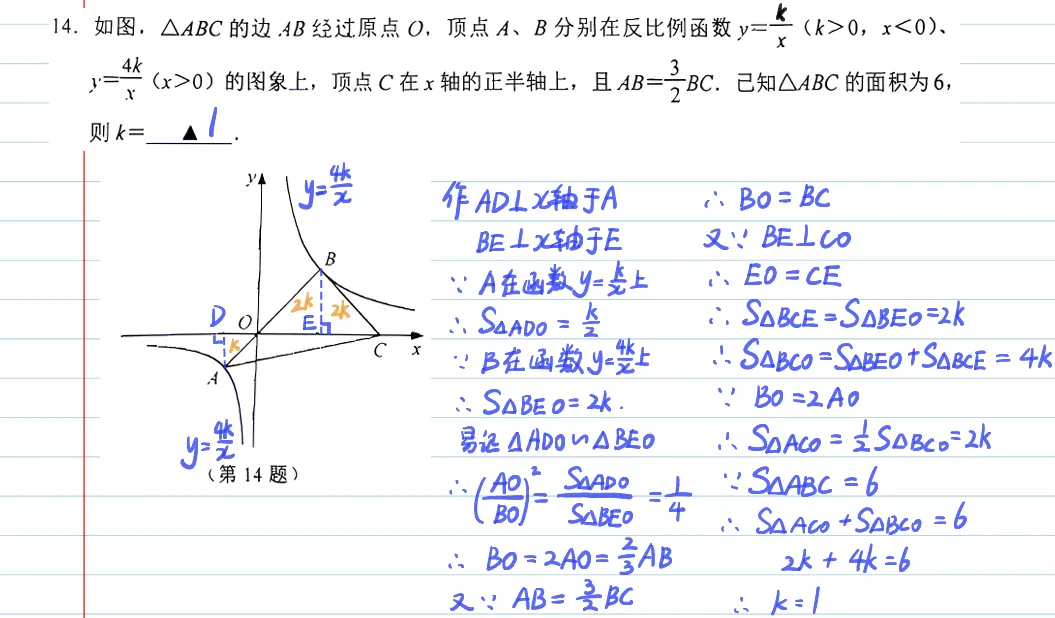 14. 如图，△ABC 的边 AB 经过原点 O，顶点 A、B 分别在反比例函数 y=k/x（k>0，x<0）、
y=4k/x（x>0）的图象上，顶点 C 在 x 轴的正半轴上，且 AB=3/2BC．已知△ABC 的面积为 6，
则 k= ▲ 1 ．
y
y=4k/x
B
2k 2k
D O E
k C x
A
y=4k/x
（第 14 题）
作 AD⊥x轴于A
BE⊥x轴于E
∵ A在函数 y=k/x上
∴ S△ADO = k/2
∵ B在函数 y=4k/x上
∴ S△BEO = 2k.
易证 △ADO∽△BEO
∴ (AO/BO)² = S△ADO/S△BEO = 1/4
∴ BO = 2AO = 2/3 AB
又∵ AB = 3/2 BC
∴ BO = BC
又∵ BE⊥CO
∴ EO = CE
∴ S△BCE = S△BEO = 2k
∴ S△BCO = S△BEO + S△BCE = 4k
∵ BO = 2AO
∴ S△ACO = 1/2 S△BCO = 2k
∵ S△ABC = 6
∴ S△ACO + S△BCO = 6
2k + 4k = 6
∴ k = 1